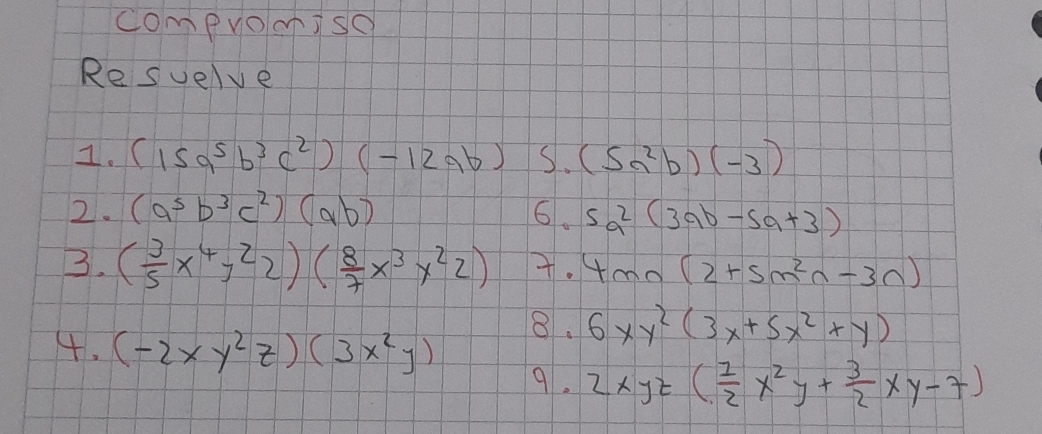 Compromiso
Resuelve
1. (15a⁵b³c²) (-12ab)
2. (a⁵b³c²) (ab)
3. (3/5 x⁴y²z) (8/7 x³y²z)
4. (-2xy²z) (3x²y)
5. (5a²b) (-3)
6. 5a² (3ab - 5a + 3)
7. 4mn (2 + 5m²n - 3n)
8. 6xy² (3x + 5x² + y)
9. 2xyz (1/2 x²y + 3/2 xy - 7)